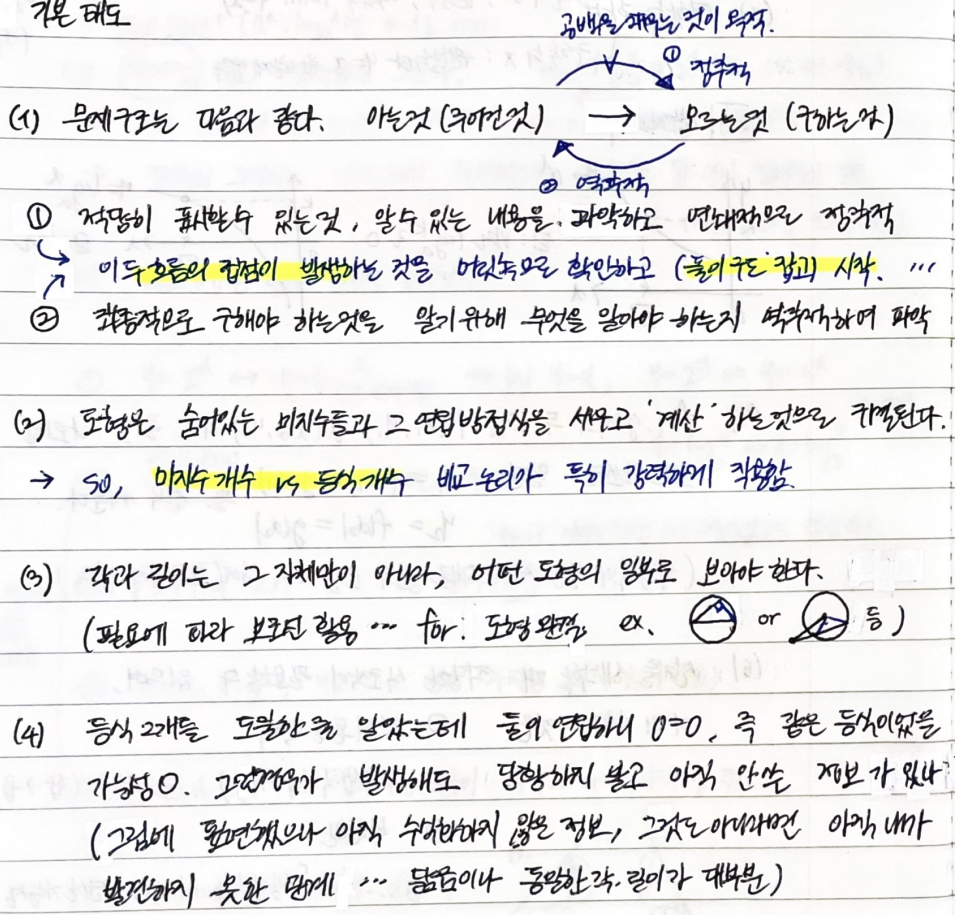 기본 태도
공백을 채우는 것이 목적.
① 정추적
(1) 문제구조는 다음과 같다. 아는것 (주어진것) → 모르는것 (구하는것)
② 역추적
① 적당히 표시할수 있는것, 알 수 있는 내용을 파악하고 연쇄적으로 정추적
이 두 흐름의 접점이 발생하는 것을 머릿속으로 확인하고 (풀이구도 잡고) 시작. …
② 최종적으로 구해야 하는것을 알기위해 무엇을 알아야 하는지 역추적하여 파악
(2) 도형은 숨어있는 미지수들과 그 연립방정식을 세우고 '계산' 하는것으로 귀결된다.
→ so, 미지수개수 vs 등식개수 비교논리가 특히 강력하게 작용함.
(3) 각과 길이는 그 자체만이 아니라, 어떤 도형의 일부로 보아야 한다.
(필요에 따라 보조선 활용 … for: 도형 완결, ex. or 등)
(4) 등식 2개를 도출한 줄 알았는데 둘의 연립하니 0=0, 즉 같은 등식이었을
가능성 O. 그런경우가 발생해도 당황하지 말고 아직 안 쓴 정보가 있나
(그림에 표현했으나 아직 수식화하지 않은 정보, 그것도 아니라면 아직 내가
발견하지 못한 관계 … 닮음이나 동일한 각·길이가 대부분)